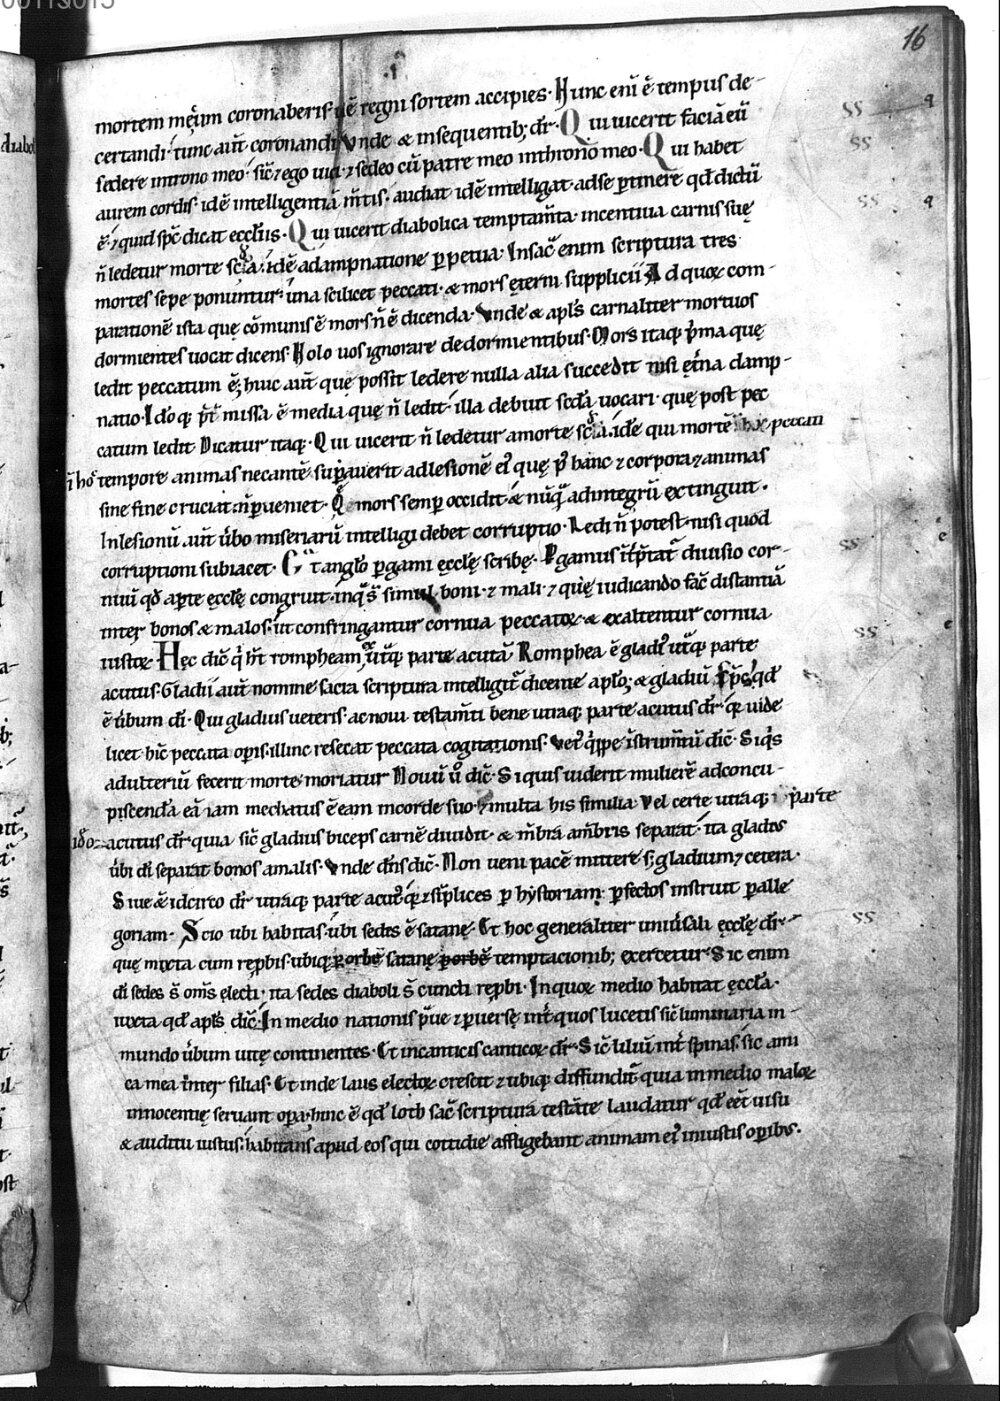 16
mortem meū coronaberis uł regni sortem accipies. Hunc eni ē tempus de-
certandi. tunc aut̄ coronandi. Vnde & in sequentib; dr̄. Qui uicerit faciā eū
sedere in trono meo. sic̄ ⁊ ego uici ⁊ sedeo cū patre meo in throno meo. Qui habet
aurem cordis. idē intelligentiā m̄tis. audiat idē intelligat. ad se ꝑtinere qd̄ dictū
ē. ⁊ quid sp̄c dicat eccl̄iis. Qui uicerit diabolica temptam̄ta. incentiua carnis suę
n̄ ledetur morte sc̄da. idē a dampnatione ꝑpetua. In sac̄ enim scriptura tres
mortes sepe ponuntur. una scilicet peccati. & mors ęterni supplicii. Ad quoꝝ com-
parationē ista quę cōmunis ē mors n̄ ē dicenda. Vnde & apl̄s carnaliter mortuos
dormientes uocat dicens. Nolo uos ignorare de dormientibus. Mors itaq; p̄ma quę
ledit peccatum ē; huic aut̄ que possit ledere nulla alia succedit nisi ęt̄na damp-
natio. Idōq; p̄t̄missa ē media quę n̄ ledit. illa debuit sc̄da uocari. quę post pec
catum ledit. Dicatur itaq;. Qui uicerit n̄ ledetur a morte sc̄da. idē qui mortē hoc peccati
in hoc tempore animas necantē suꝑauerit ad lesionē ei᾿ quę p̄ hanc ⁊ corpora ⁊ animas
sine fine cruciat. n̄ ꝑueniet. Qa mors semꝑ occidit & nūq̄ ad integrū extinguit.
In lesionū aut̄ ūbo miseriarū intelligi debet corruptio. Ledi n̄ potest nisi quod
corruptioni subiacet. Et anglo ꝑgami ęcclę scribę. Pgamus īt̄p̄tat̄ diuisio cor-
nuū qd̄ aꝑte ęcclę congruit. in q̄ s̄ simul boni. ⁊ mali. ⁊ quę iudicando fac̄ distantiā
inter bonos & malos. ut confringantur cornua peccatoꝝ & exaltentur cornua
iustoꝝ. Hęc dic̄ q̄ ht̄ rompheam ut̄q; parte acutā. Romphea ē gladi᾿ ut̄q; parte
acutus. Gladii aut̄ nomine sacra scriptura intelligit̄ dicente aplo; & gladiū sp̄c qd̄
ē ūbum dī. Qui gladius ueteris. ac noui testam̄ti bene utraq; parte acutus dr̄. qa uide
licet hic̄ peccata oꝑis. illinc resecat peccata cogitationis. Vet᾿ q̄ppe īstrumtū dic̄. Si q̄s
adulteriū fecerit morte moriatur. Nouū ū dic̄. Si quis uiderit mulierē ad concu-
piscendā eā iam mechatus ē eam in corde suo. ⁊ multa his similia. Vel certe utraq; parte
idō acutus dr̄. quia sic̄ gladius biceps carnē diuidit. & m̄bra a m̄bris separat. ita gladi᾿
ūbi dī separat bonos a malis. Vnde dn̄s dic̄. Non ueni pacē mittere s; gladium ⁊ cetera.
Siue & idcirco dr̄ utraq; parte acut᾿ qa ⁊ sīplices ꝑ hystoriam. ꝑfectos instruit ꝑ alle
goriam. Scio ubi habitas. ubi sedes ē satanę. Et hoc generaliter uniūsali ęcclę dr̄
quę mixta cum rep̄bis. ubiq; ꝑ orbē satanę ꝑ orbē temptacionib; exercetur. Sic enim
dī sedes s̄ om̄s electi. ita sedes diaboli s̄ cuncti rep̄bi. In quoꝝ medio habitat ęccla.
iuxta qd̄ apl̄s dic̄. In medio nationis p̄ue ⁊ ꝑuersę. int̄ quos lucetis sic̄ luminaria in
mundo ūbum uitę continentes. Et in canticis canticoꝝ dr̄. Sic̄ liliū int̄ spinas. sic ami
ca mea inter filias. Et inde laus electoꝝ crescit ⁊ ubiq; diffundit̄ quia in medio maloꝝ
innocentię seruant opa. hinc ē qd̄ loth sac̄ scriptura testāte laudatur qd̄ eēt uisu
& auditu iustus. habitans apud eos qui cottidie affligebant animam ei᾿ iniustis oꝑibs.